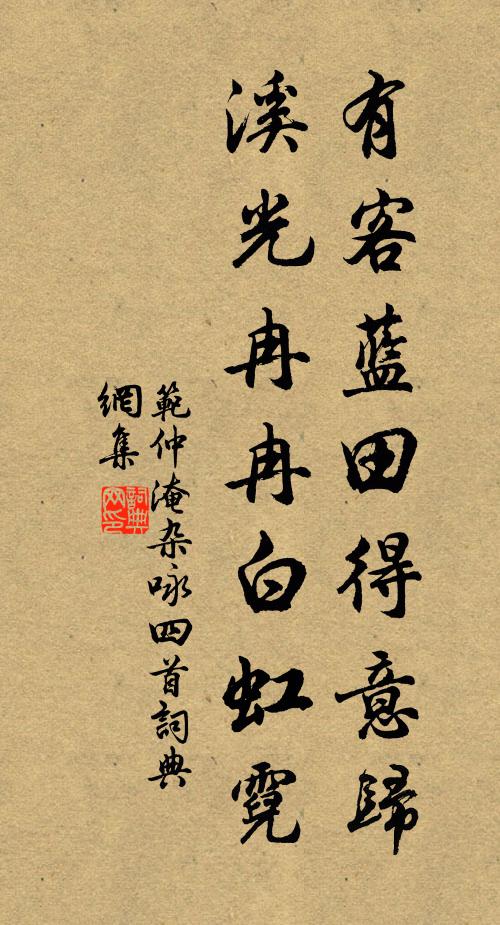 有客藍田得意歸
溪光冉冉白虹霓
範仲淹杂咏四首詞典
網集
詞典
网印